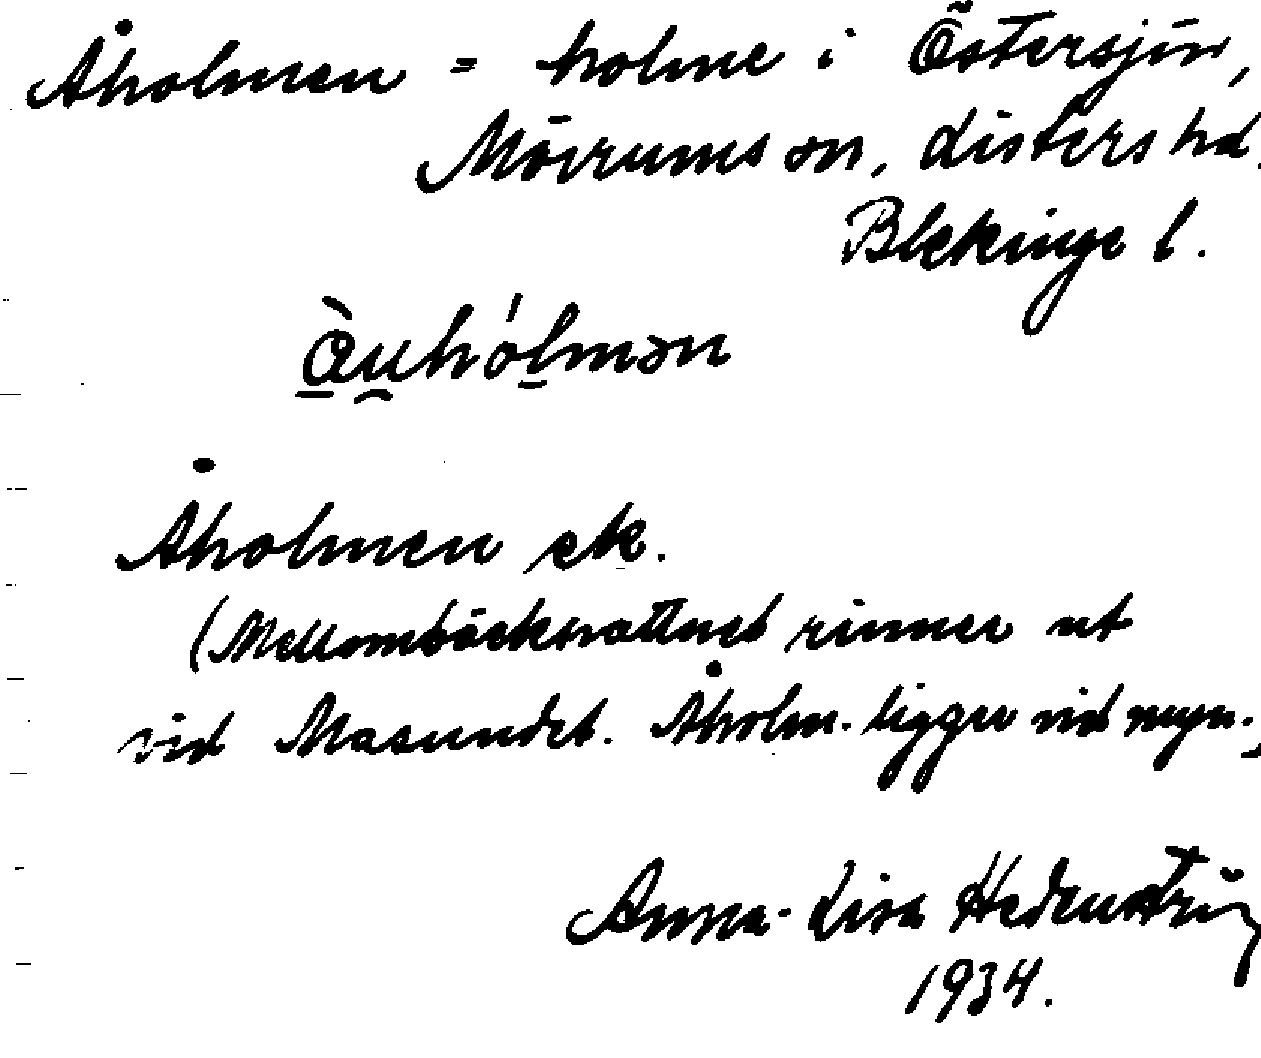 Åholmen = holme i Östersjön,
Mörrums sn, Listers hd.
Blekinge l.
Åholmen ek.
(Mellombäcksvattnet rinner ut
vid Masundet. Åholm. ligger vid mynn.)
Anna-Lisa
1934.